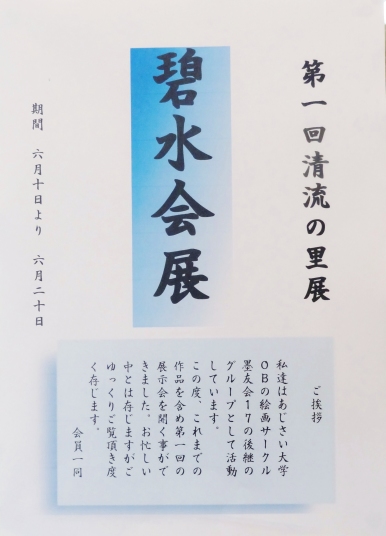 第一回清流の里展
碧水会展
期間 六月十日より 六月二十日
ご挨拶
私達はあじさい大学
ＯＢの絵画サークル
墨友会１７の後継の
グループとして活動
しています。
この度、これまでの
作品を含め第一回の
展示会を開く事がで
きました。お忙しい
中とは存じますがご
ゆっくりご覧頂き度
く存じます。
会員一同